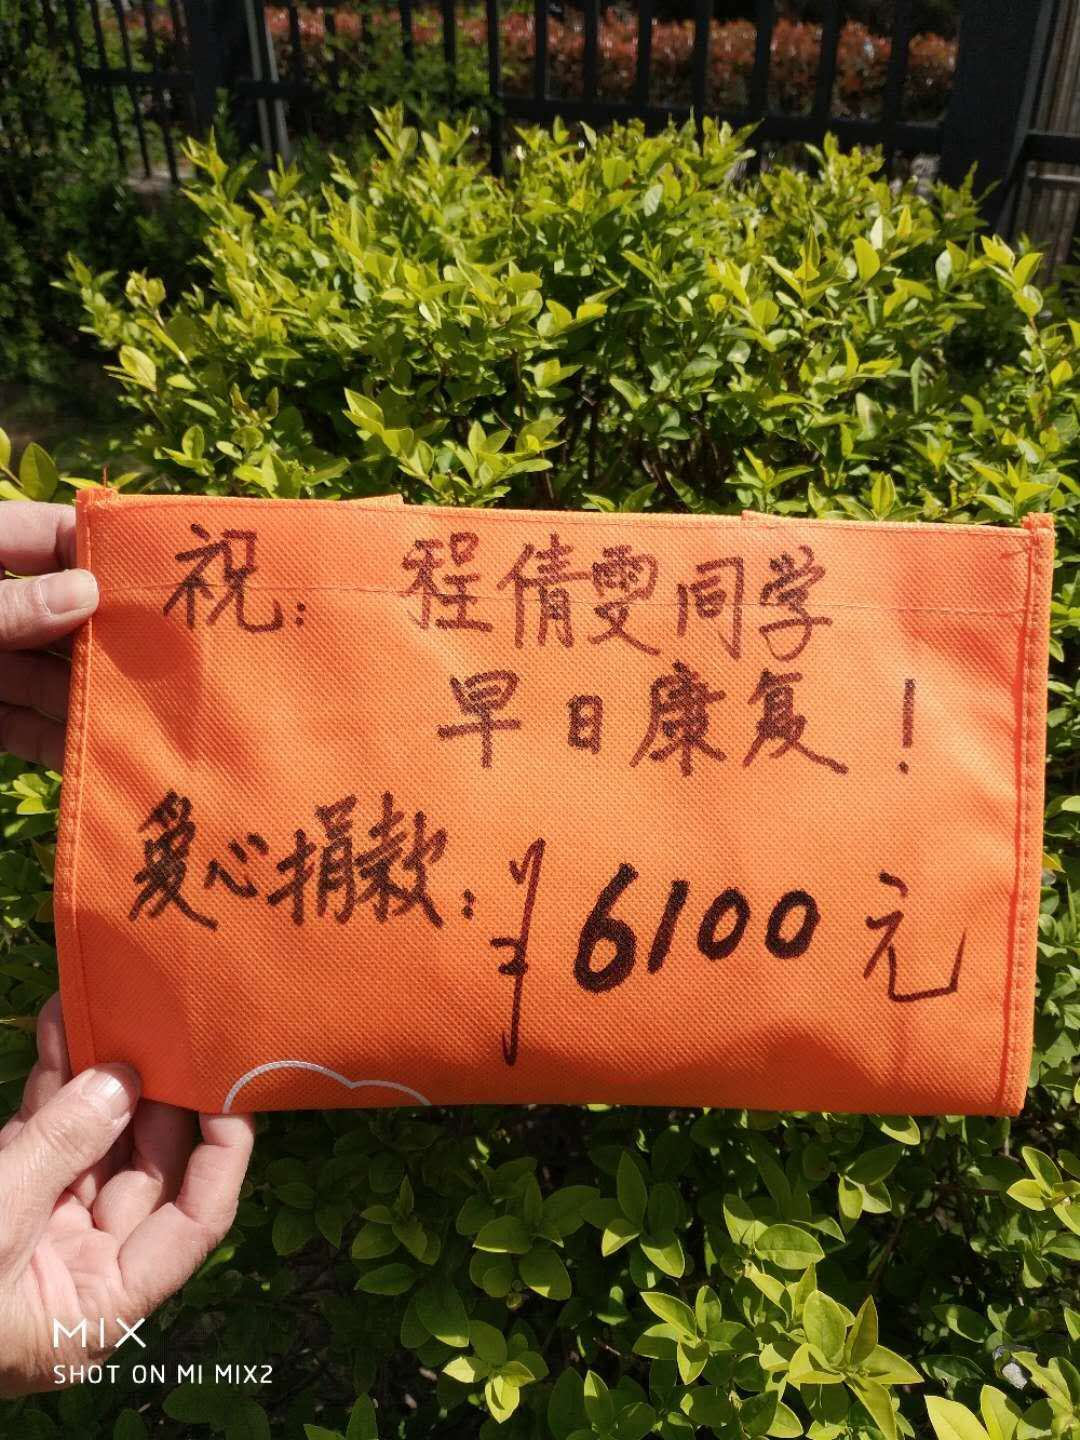 祝: 程倩雯同学
早日康复！
爱心捐款:¥6100元
MIX
SHOT ON MI MIX2